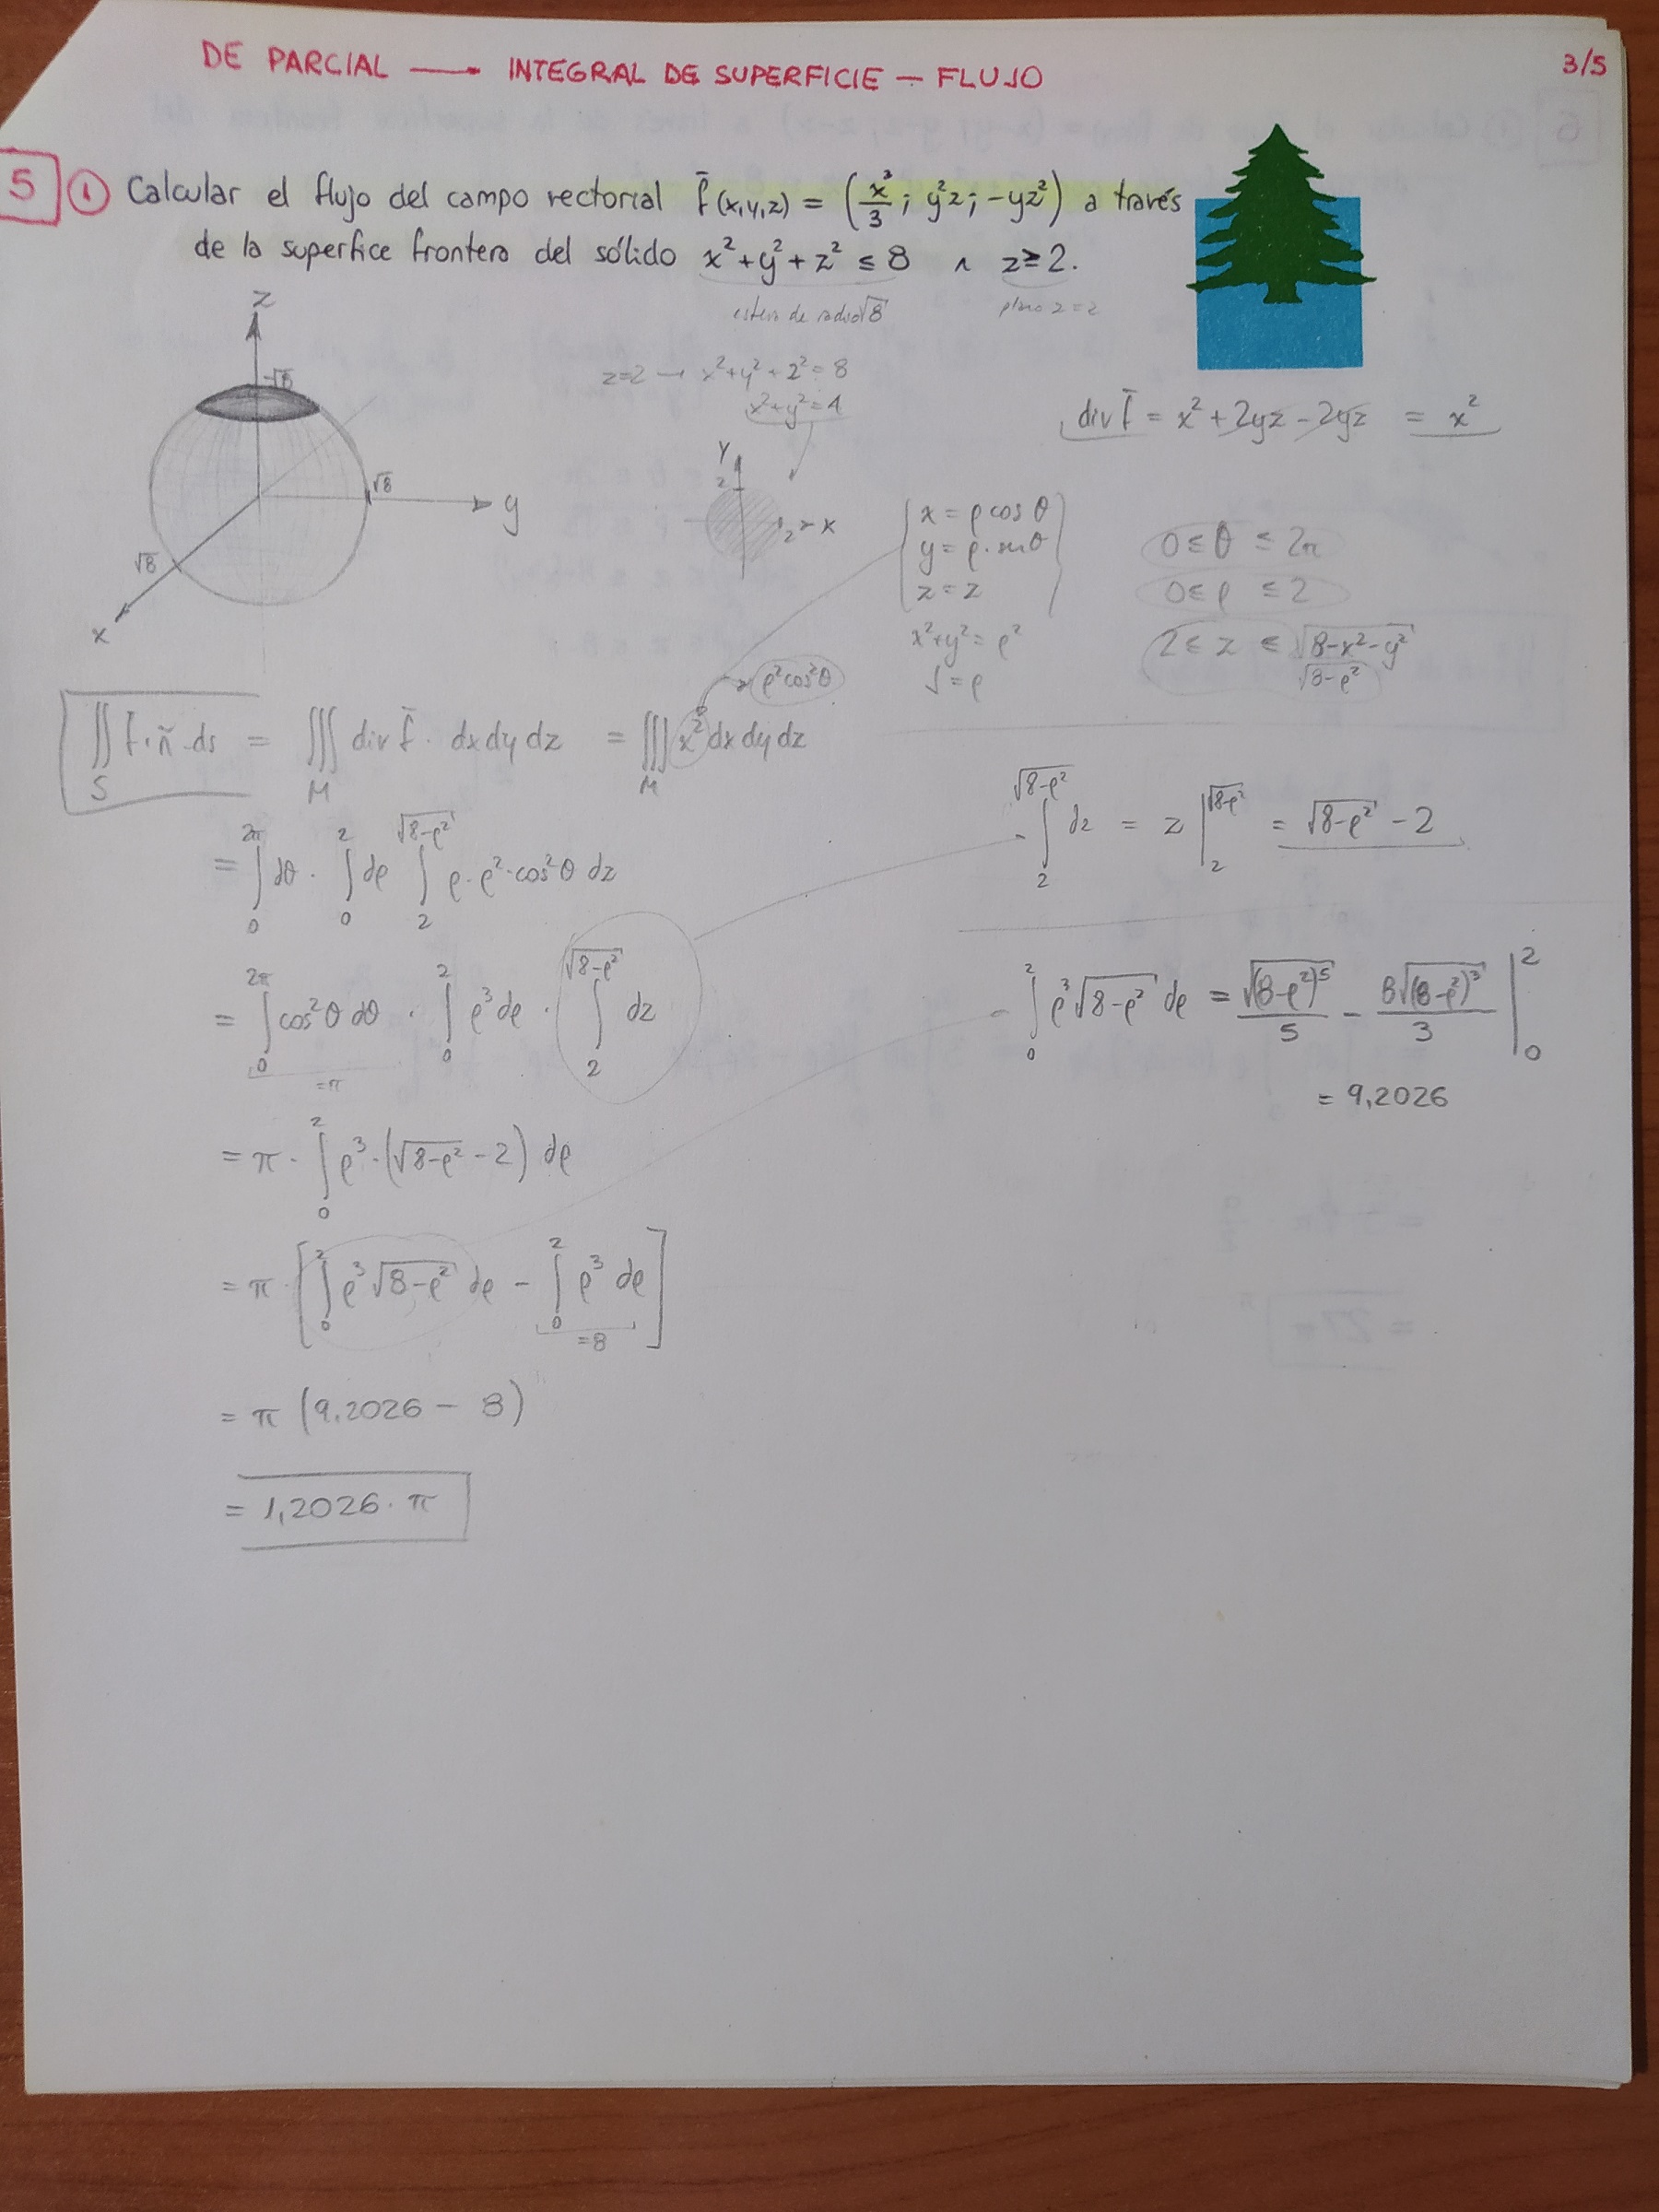 DE PARCIAL → INTEGRAL DE SUPERFICIE — FLUJO
3/5
5 ① Calcular el flujo del campo vectorial f̄(x,y,z) = (x³/3; y²z; -yz²) a través
de la superfice frontera del sólido x²+y²+z² ≤ 8 ∧ z≥2.
esfera de radio √8
plano z=2
z
√8
√8
y
√8
x
z=2 → x²+y²+2²=8
x²+y²=4
div f̄ = x² + 2yz - 2yz = x²
y
2
2
x
x = ρ cos θ
y = ρ·sen θ
z = z
x²+y² = ρ²
J = ρ
0 ≤ θ ≤ 2π
0 ≤ ρ ≤ 2
2 ≤ z ≤ √(8-x²-y²)
√(8-ρ²)
ρ²cos²θ
∬_S f̄·ñ·ds = ∭_M div f̄ · dxdydz = ∭_M x² dxdydz
= ∫₀^2π dθ · ∫₀² dρ ∫₂^√(8-ρ²) ρ·ρ²·cos²θ dz
= ∫₀^2π cos²θ dθ · ∫₀² ρ³dρ · ∫₂^√(8-ρ²) dz
=π
= π · ∫₀² ρ³·(√(8-ρ²) - 2) dρ
= π · [∫₀² ρ³√(8-ρ²) dρ - ∫₀² ρ³ dρ]
=8
= π (9,2026 - 8)
= 1,2026·π
- ∫₂^√(8-ρ²) dz = z |₂^√(8-ρ²) = √(8-ρ²) - 2
- ∫₀² ρ³√(8-ρ²) dρ = √(8-ρ²)⁵/5 - 8√(8-ρ²)³/3 |₀²
= 9,2026